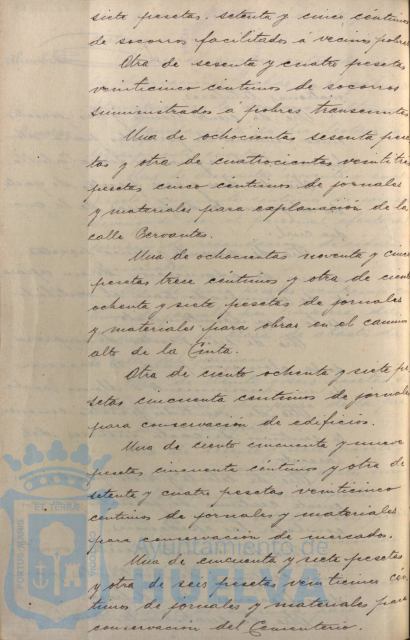 siete pesetas setenta y cinco céntimos
de socorros facilitados á vecinos pobres
Otra de sesenta y cuatro pesetas
veinticinco céntimos de socorros
suministrados a pobres transeuntes
Una de ochocientas sesenta pese
tas y otra de cuatrocientas veintitres
pesetas cinco céntimos de jornales
y materiales para explanación de la
calle Cervantes.
Una de ochocientas noventa y cinco
pesetas trece céntimos y otra de ciento
ochenta y siete pesetas de jornales
y materiales para obras en el camino
alto de la Cinta.
Otra de ciento ochenta y siete pe
setas cincuenta céntimos de jornales
para conservación de edificios.
Una de ciento cincuenta y nueve
pesetas cincuenta céntimos y otra de
setenta y cuatro pesetas veinticinco
céntimos de jornales y materiales
para conservación de mercados.
Una de cincuenta y siete pesetas
y otra de seis pesetas veinticinco cén
timos de jornales y materiales para
conservación del Cementerio.
PORTUS MARIS ET TERRAE CUSTODIA
Ayuntamiento de
HUELVA